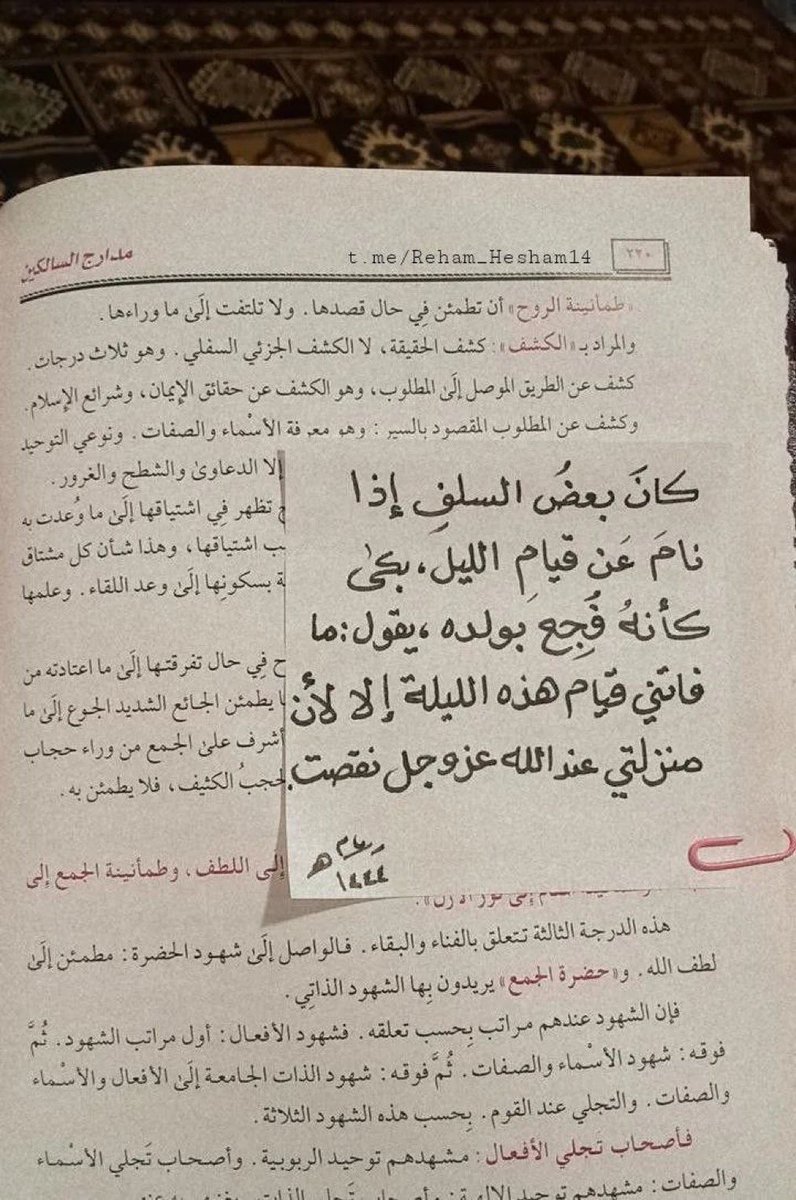 مدارج السالكين
t.me/Reham_Hesham14
٢٢٠
«طمأنينة الروح» أن تطمئن فِي حال قصدها. ولا تلتفت إلَىٰ ما وراءها.
والمراد بـ«الكشف»: كشف الحقيقة، لا الكشف الجزئي السفلي. وهو ثلاث درجات.
كشف عن الطريق الموصل إلَىٰ المطلوب، وهو الكشف عن حقائق الإيمان، وشرائع الإسلام.
وكشف عن المطلوب المقصود بالسير: وهو معرفة الأسْماء والصفات. ونوعي التوحيد
إلا الدعاوىٰ والشطح والغرور.
تظهر فِي اشتياقها إلَىٰ ما وُعدت به
اشتياقها، وهذا شأن كل مشتاق
بسكونِها إلَىٰ وعد اللقاء. وعلمها
فِي حال تفرقتها إلَىٰ ما اعتادته من
يطمئن الجائع الشديد الجوع إلَىٰ ما
أشرف علىٰ الجمع من وراء حجاب
الكثيف، فلا يطمئن به.
كانَ بعضُ السلفِ إذا
نامَ عَن قيامِ الليل، بكىٰ
كأنهُ فُجِعَ بولده، يقول: ما
فاتني قيام هذه الليلة إلا لأن
منزلتي عند الله عز وجل نقصت.
١٤٤٤ هـ
إلَىٰ اللطف، وطمأنينة الجمع إلى
هذه الدرجة الثالثة تتعلق بالفناء والبقاء. فالواصل إلَىٰ شهود الحضرة: مطمئن إلَىٰ
لطف الله. و«حضرة الجمع» يريدون بِها الشهود الذاتِي.
فإن الشهود عندهم مراتب بِحسب تعلقه. فشهود الأفعال: أول مراتب الشهود. ثُمَّ
فوقه: شهود الأسْماء والصفات. ثُمَّ فوقه: شهود الذات الجامعة إلَىٰ الأفعال والأسْماء
والصفات. والتجلي عند القوم. بِحسب هذه الشهود الثلاثة.
فأصحاب تجلي الأفعال: مشهدهم توحيد الربوبية. وأصحاب تَجلي الأسْماء
والصفات: مشهدهم توحيد الإلهية.